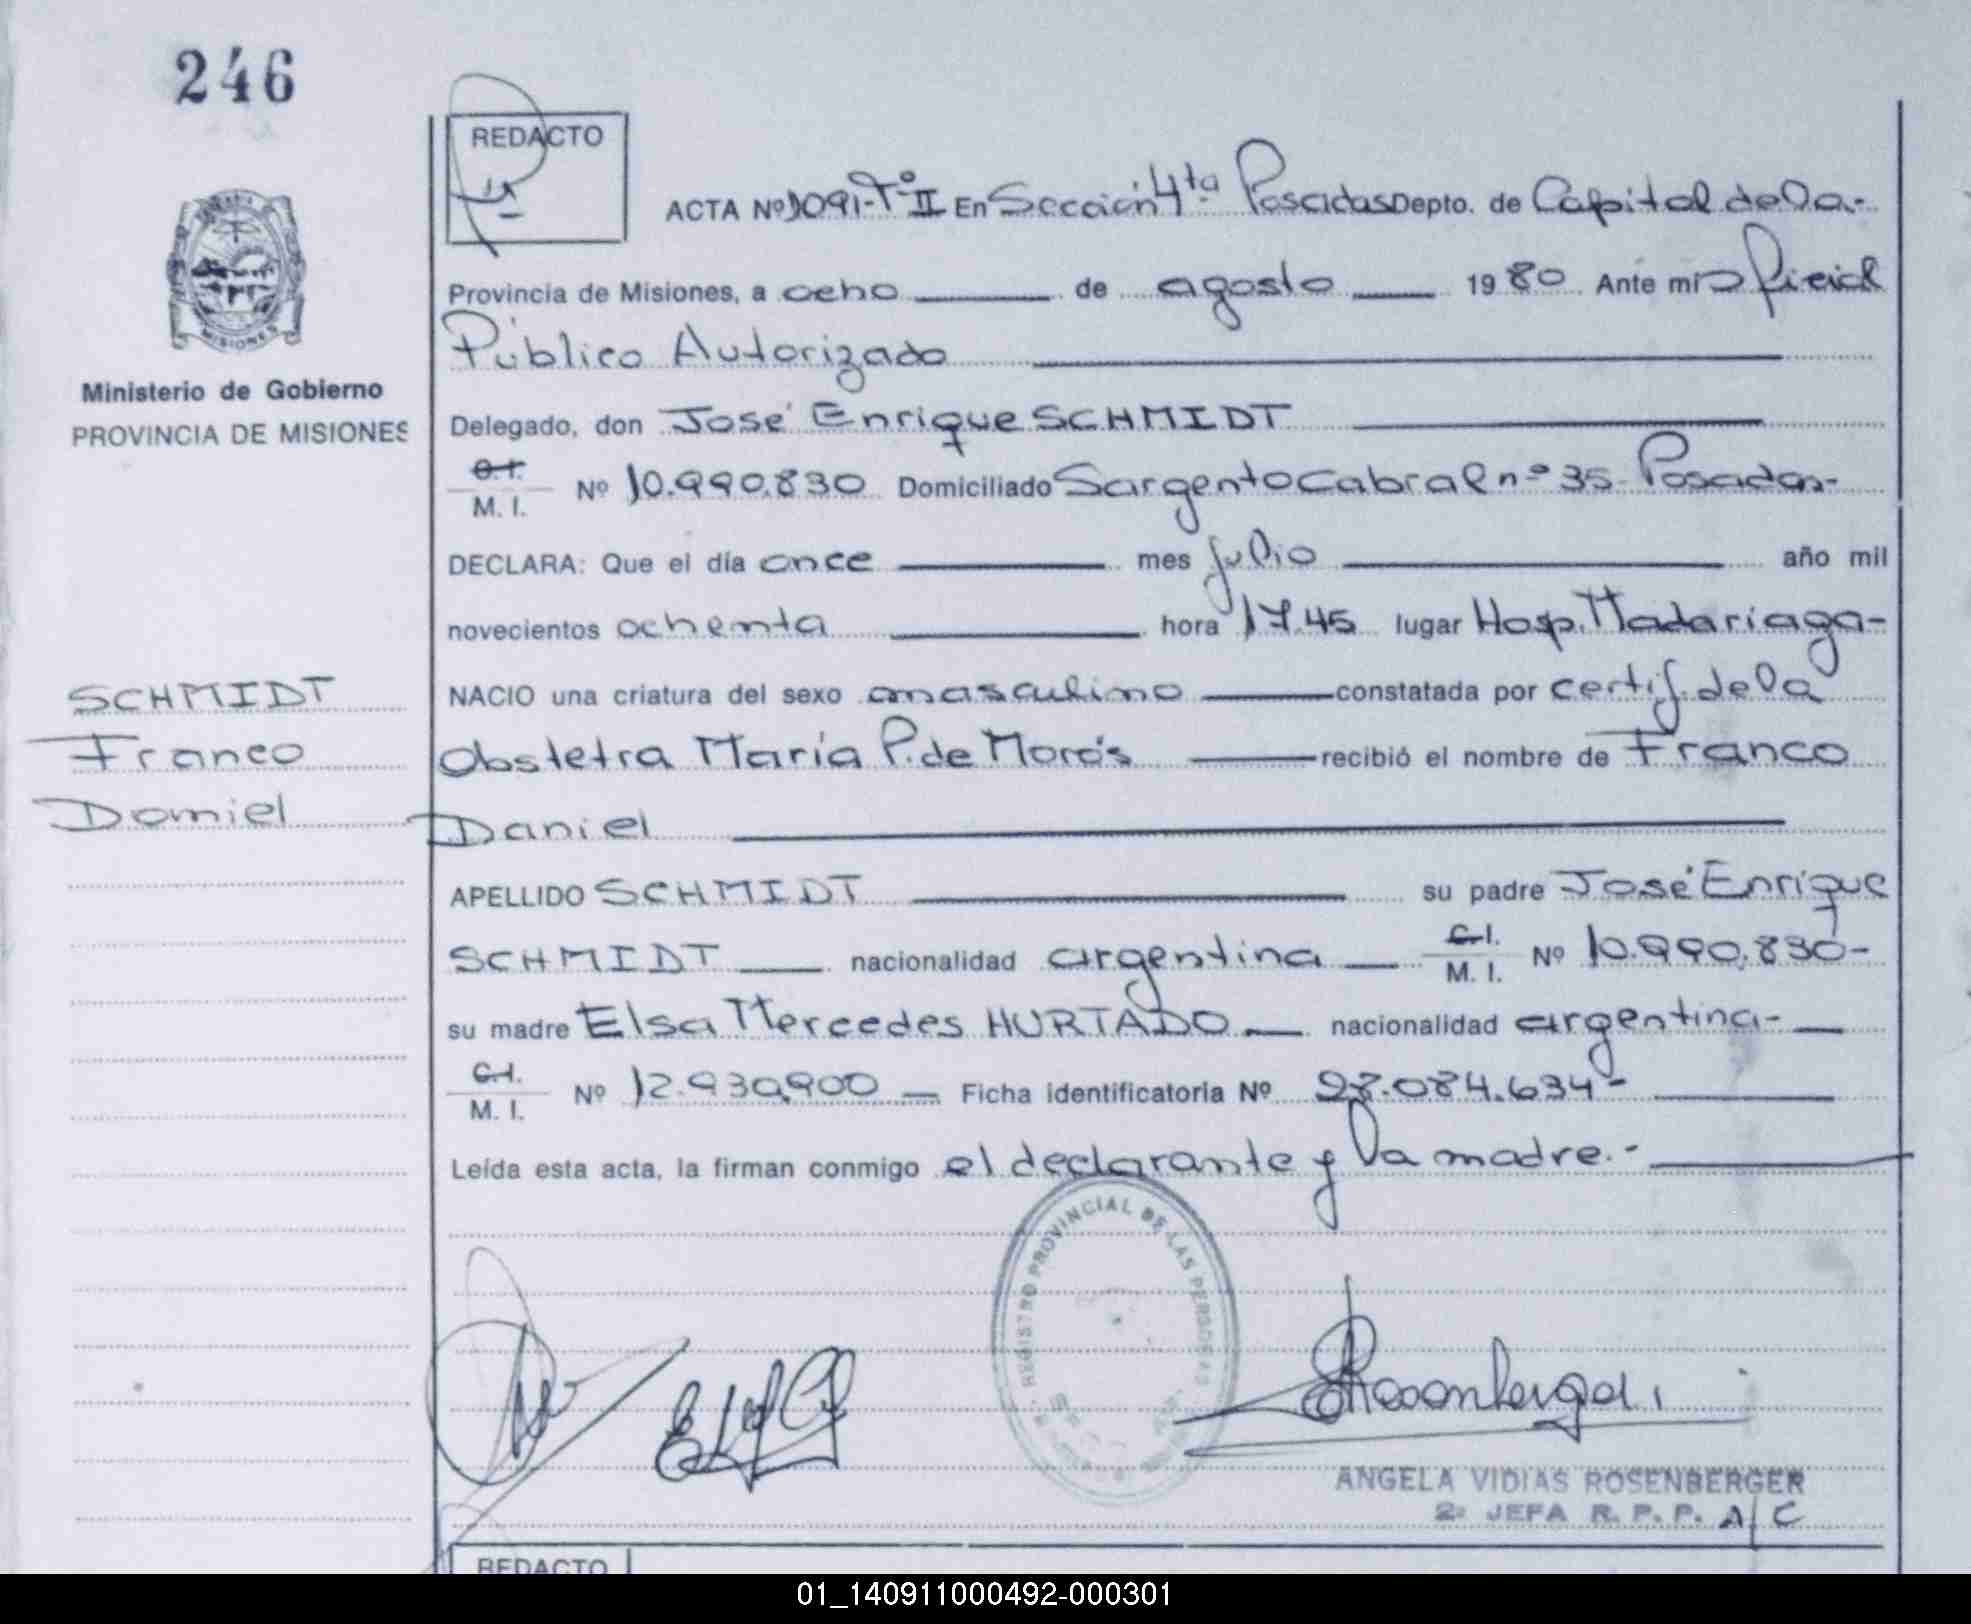 246
REDACTO
ACTA Nº 1091-Tº II En Sección 4ta Posadas Depto. de Capital de la.-
Provincia de Misiones, a ocho de agosto 1980 Ante mi Oficial
Público Autorizado
Delegado, don José Enrique SCHMIDT
C.I.
M. I. Nº 10.990.830 Domiciliado Sargento Cabral nº 35 Posadas-
DECLARA: Que el día once mes julio año mil
novecientos ochenta hora 17.45 lugar Hosp. Madariaga-
NACIO una criatura del sexo masculino constatada por certif. de la
Obstetra María P. de Morás recibió el nombre de Franco
Daniel
APELLIDO SCHMIDT su padre José Enrique
SCHMIDT nacionalidad argentina C.I. M. I. Nº 10.990.830-
su madre Elsa Mercedes HURTADO nacionalidad argentina-
C.I.
M. I. Nº 12.930.900 Ficha identificatoria Nº 28.084.634-
Leída esta acta, la firman conmigo el declarante y la madre.-
MISIONES
Ministerio de Gobierno
PROVINCIA DE MISIONES
SCHMIDT
Franco
Daniel
REGISTRO PROVINCIAL DE LAS PERSONAS
ANGELA VIDIAS ROSENBERGER
2ª JEFA R. P. P. A/C
REDACTO
01_140911000492-000301